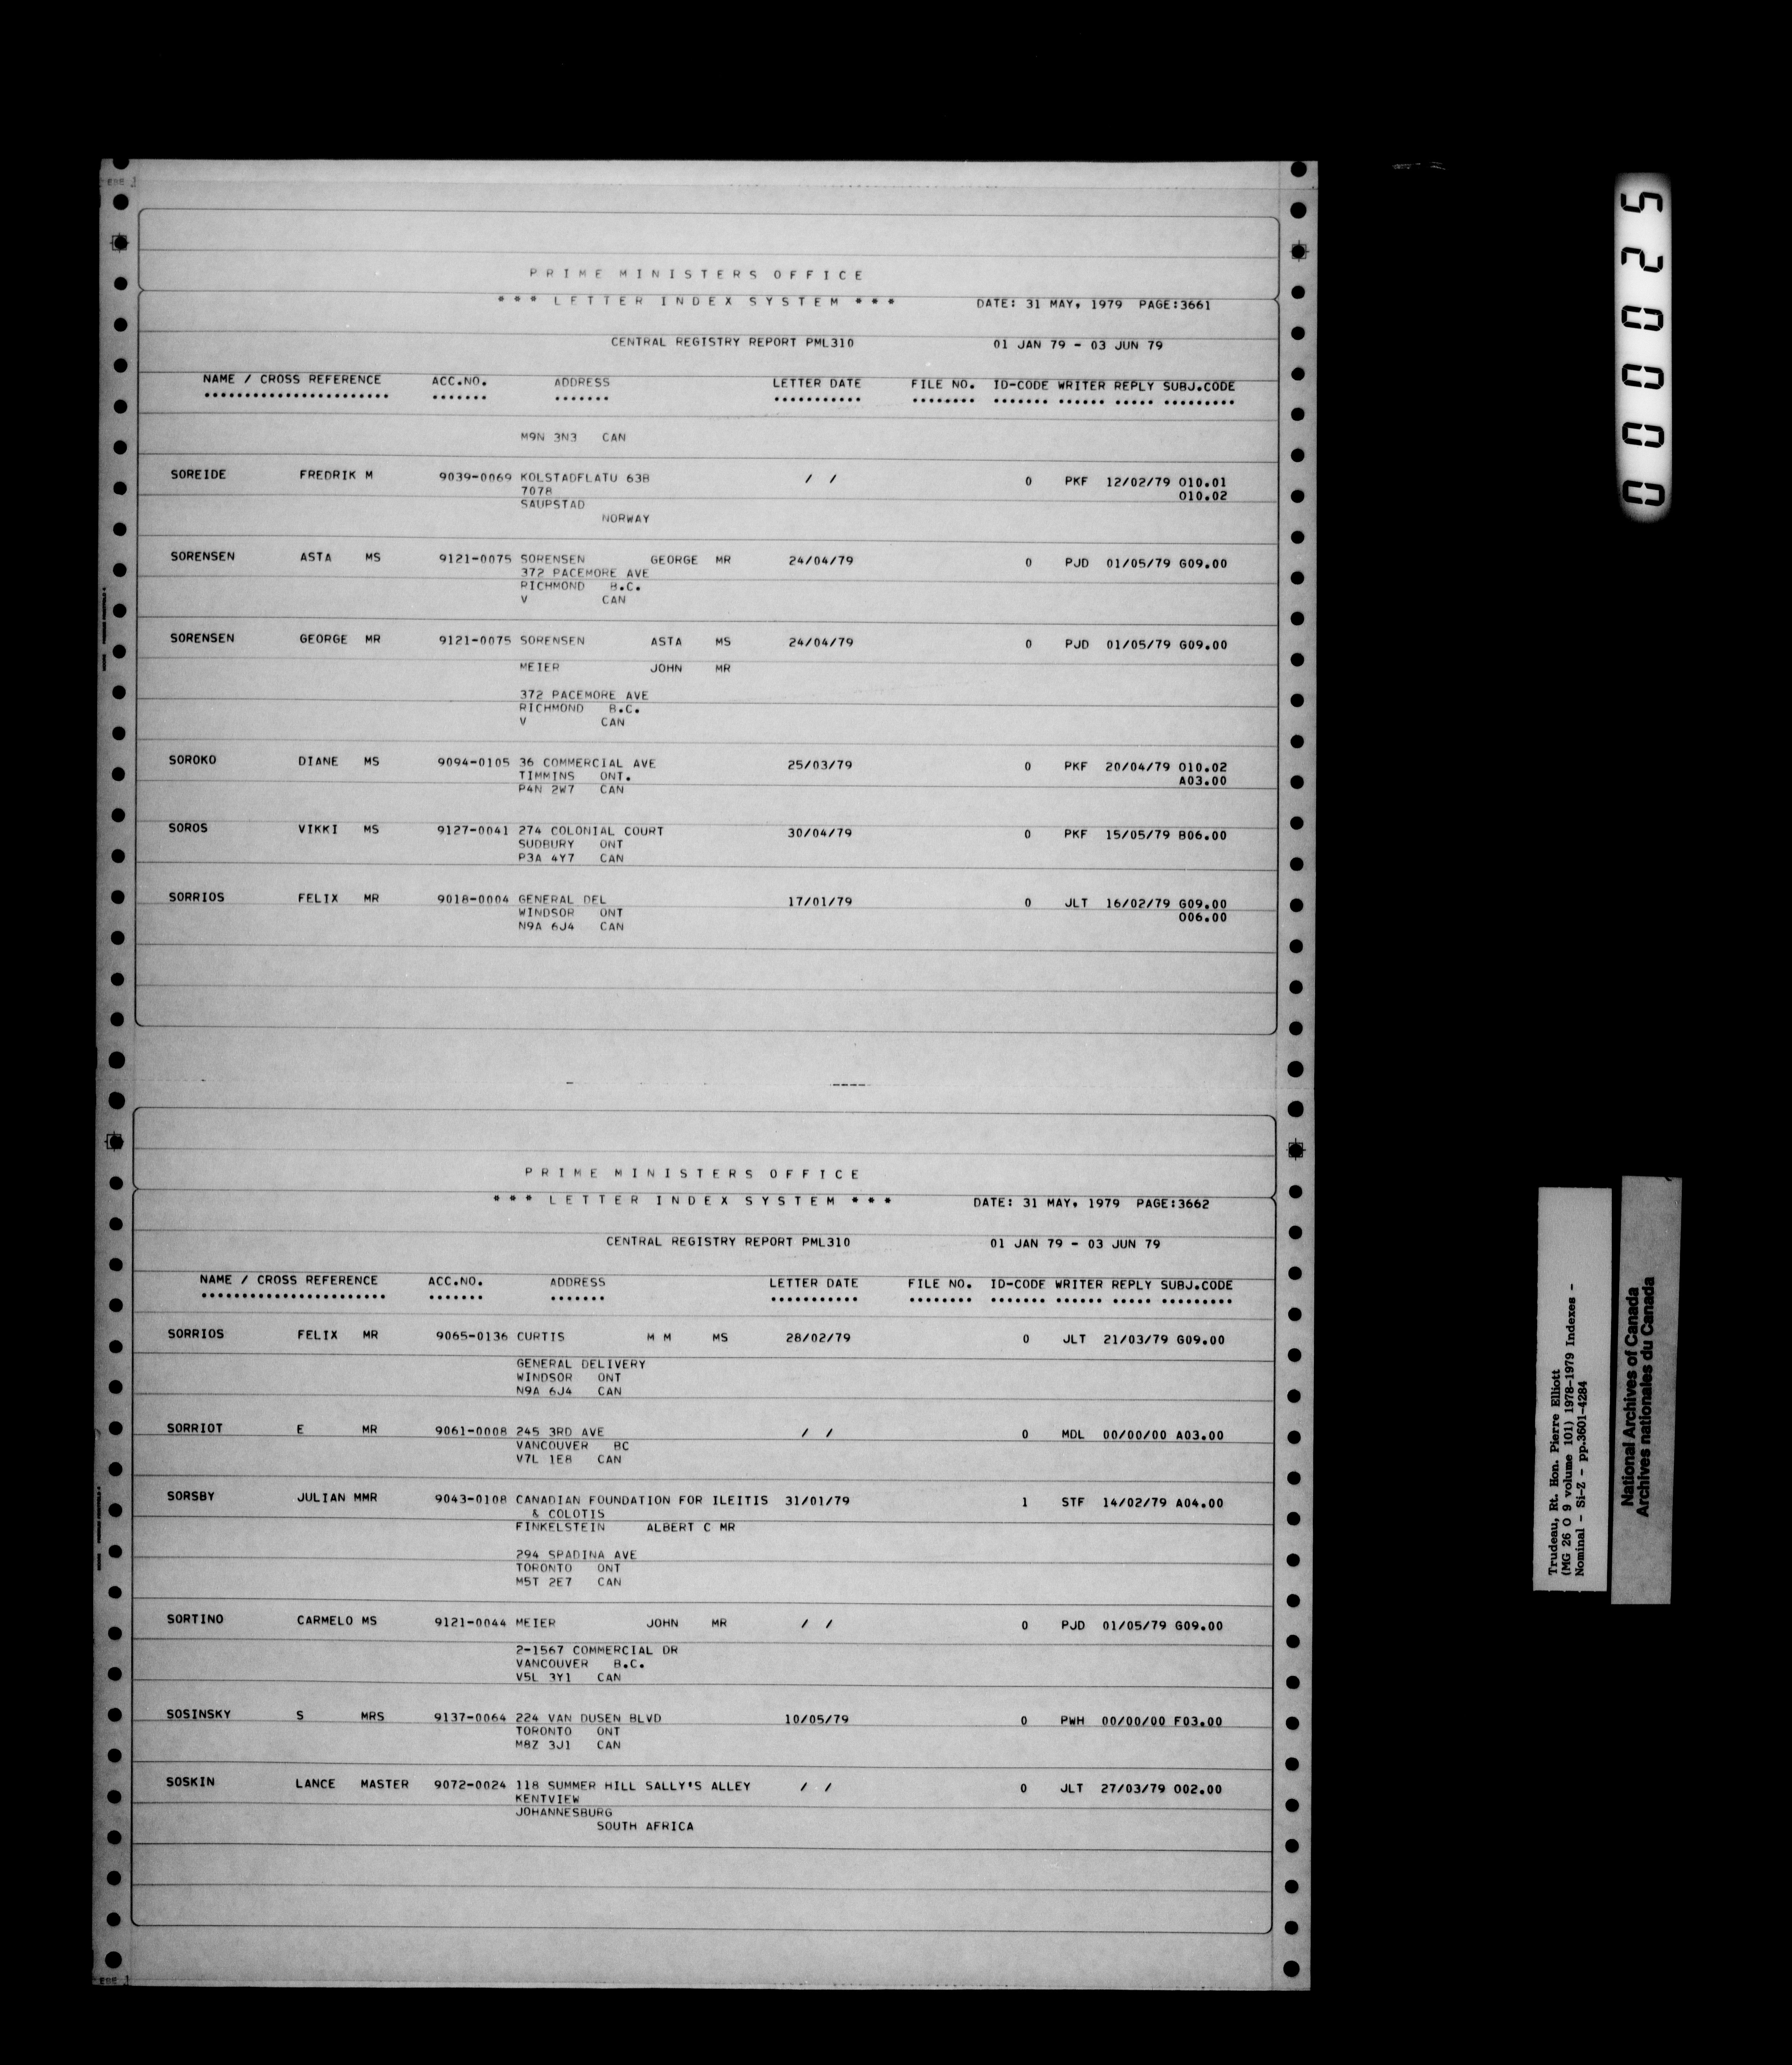 PRIME MINISTERS OFFICE
*** LETTER INDEX SYSTEM *** DATE: 31 MAY, 1979 PAGE:3661
CENTRAL REGISTRY REPORT PML310 01 JAN 79 - 03 JUN 79
NAME / CROSS REFERENCE ACC.NO. ADDRESS LETTER DATE FILE NO. ID-CODE WRITER REPLY SUBJ.CODE
M9N 3N3 CAN
SOREIDE FREDRIK M 9039-0069 KOLSTADFLATU 63B / / 0 PKF 12/02/79 O10.01
7078 O10.02
SAUPSTAD
NORWAY
SORENSEN ASTA MS 9121-0075 SORENSEN GEORGE MR 24/04/79 0 PJD 01/05/79 G09.00
372 PACEMORE AVE
RICHMOND B.C.
V CAN
SORENSEN GEORGE MR 9121-0075 SORENSEN ASTA MS 24/04/79 0 PJD 01/05/79 G09.00
MEIER JOHN MR
372 PACEMORE AVE
RICHMOND B.C.
V CAN
SOROKO DIANE MS 9094-0105 36 COMMERCIAL AVE 25/03/79 0 PKF 20/04/79 O10.02
TIMMINS ONT. A03.00
P4N 2W7 CAN
SOROS VIKKI MS 9127-0041 274 COLONIAL COURT 30/04/79 0 PKF 15/05/79 B06.00
SUDBURY ONT
P3A 4Y7 CAN
SORRIOS FELIX MR 9018-0004 GENERAL DEL 17/01/79 0 JLT 16/02/79 G09.00
WINDSOR ONT O06.00
N9A 6J4 CAN
PRIME MINISTERS OFFICE
*** LETTER INDEX SYSTEM *** DATE: 31 MAY, 1979 PAGE:3662
CENTRAL REGISTRY REPORT PML310 01 JAN 79 - 03 JUN 79
NAME / CROSS REFERENCE ACC.NO. ADDRESS LETTER DATE FILE NO. ID-CODE WRITER REPLY SUBJ.CODE
SORRIOS FELIX MR 9065-0136 CURTIS M M MS 28/02/79 0 JLT 21/03/79 G09.00
GENERAL DELIVERY
WINDSOR ONT
N9A 6J4 CAN
SORRIOT E MR 9061-0008 245 3RD AVE / / 0 MDL 00/00/00 A03.00
VANCOUVER BC
V7L 1E8 CAN
SORSBY JULIAN MMR 9043-0108 CANADIAN FOUNDATION FOR ILEITIS 31/01/79 1 STF 14/02/79 A04.00
& COLOTIS
FINKELSTEIN ALBERT C MR
294 SPADINA AVE
TORONTO ONT
M5T 2E7 CAN
SORTINO CARMELO MS 9121-0044 MEIER JOHN MR / / 0 PJD 01/05/79 G09.00
2-1567 COMMERCIAL DR
VANCOUVER B.C.
V5L 3Y1 CAN
SOSINSKY S MRS 9137-0064 224 VAN DUSEN BLVD 10/05/79 0 PWH 00/00/00 F03.00
TORONTO ONT
M8Z 3J1 CAN
SOSKIN LANCE MASTER 9072-0024 118 SUMMER HILL SALLY'S ALLEY / / 0 JLT 27/03/79 O02.00
KENTVIEW
JOHANNESBURG
SOUTH AFRICA
000025
Trudeau, Rt. Hon. Pierre Elliott
(MG 26 O 9 volume 101) 1978-1979 Indexes -
Nominal - Si-Z - pp.3601-4284
National Archives of Canada
Archives nationales du Canada